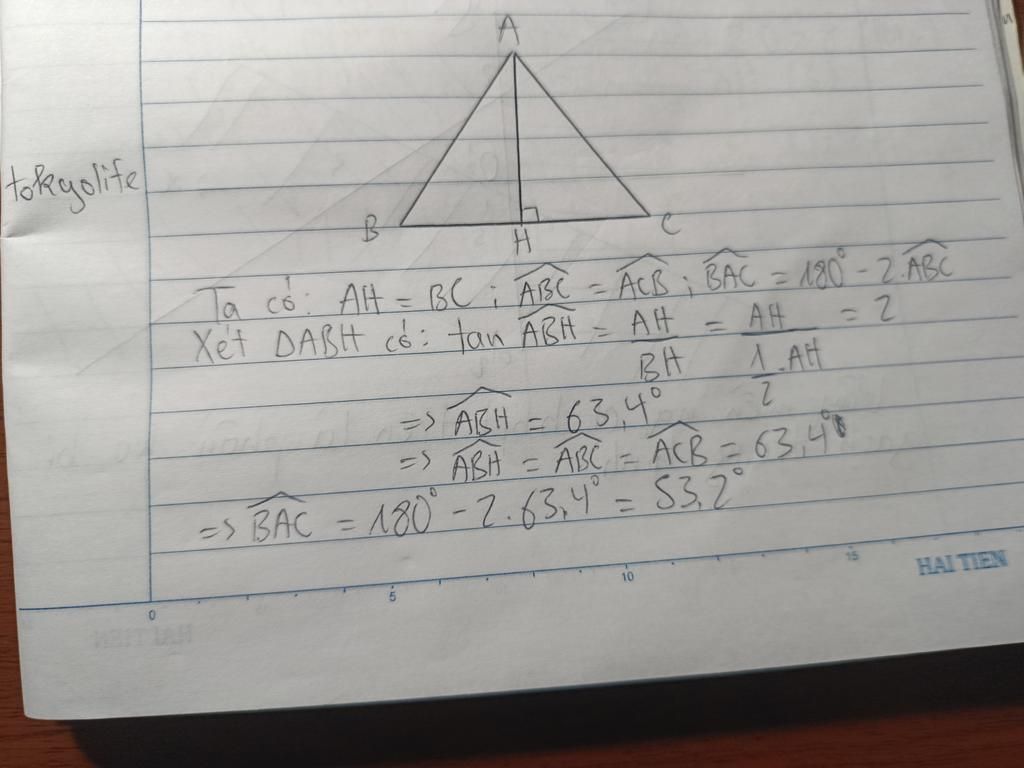 A
tokyolife
B
H
C
Ta có: AH = BC ; \widehat{ABC} = \widehat{ACB} ; \widehat{BAC} = 180° - 2.\widehat{ABC}
Xét DABH có: tan \widehat{ABH} = \frac{AH}{BH} = \frac{AH}{\frac{1}{2}.AH} = 2
=> \widehat{ABH} = 63,4°
=> \widehat{ABH} = \widehat{ABC} = \widehat{ACB} = 63,4°
=> \widehat{BAC} = 180° - 2.63,4° = 53,2°
0 5 10 15
HAI TIEN